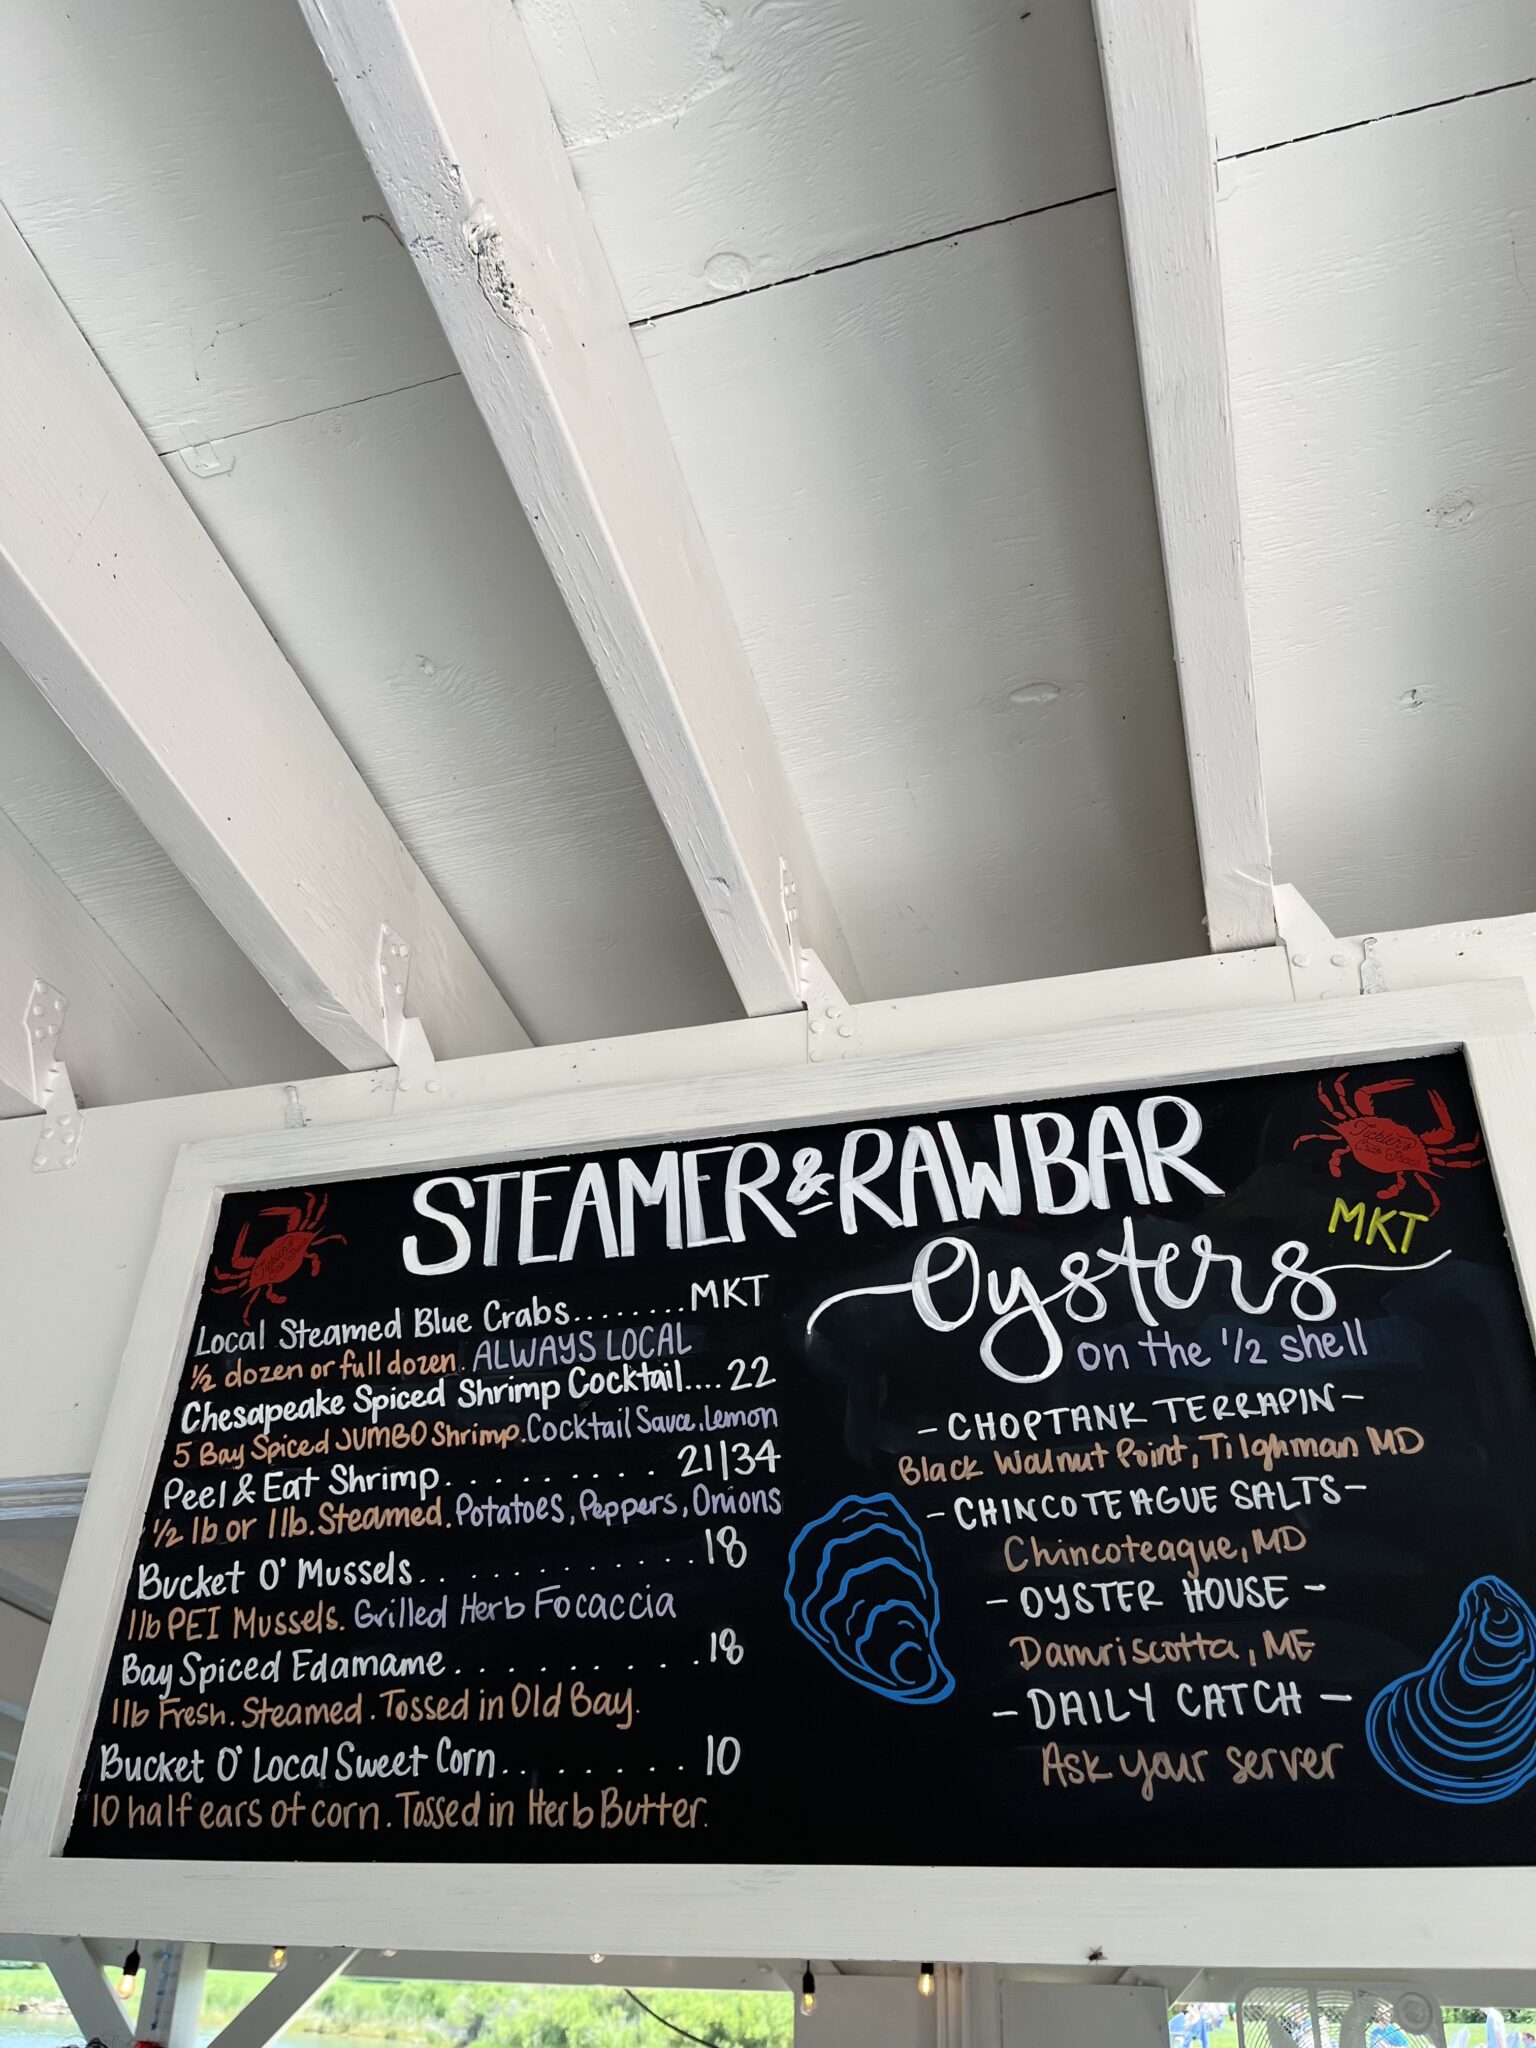 STEAMER & RAWBAR
Local Steamed Blue Crabs........MKT
1/2 dozen or full dozen. ALWAYS LOCAL
Chesapeake Spiced Shrimp Cocktail....22
5 Bay Spiced JUMBO Shrimp. Cocktail Sauce, Lemon
Peel & Eat Shrimp.........21/34
1/2 lb or 1 lb. Steamed. Potatoes, Peppers, Onions
Bucket O' Mussels...........18
1lb PEI Mussels. Grilled Herb Focaccia
Bay Spiced Edamame..........18
1lb Fresh. Steamed. Tossed in Old Bay.
Bucket O' Local Sweet Corn.......10
10 half ears of corn. Tossed in Herb Butter.
Tickler's
Crab Shack
MKT
Oysters
on the 1/2 shell
- CHOPTANK TERRAPIN -
Black Walnut Point, Tilghman MD
- CHINCOTEAGUE SALTS -
Chincoteague, MD
- OYSTER HOUSE -
Damriscotta, ME
- DAILY CATCH -
Ask your server